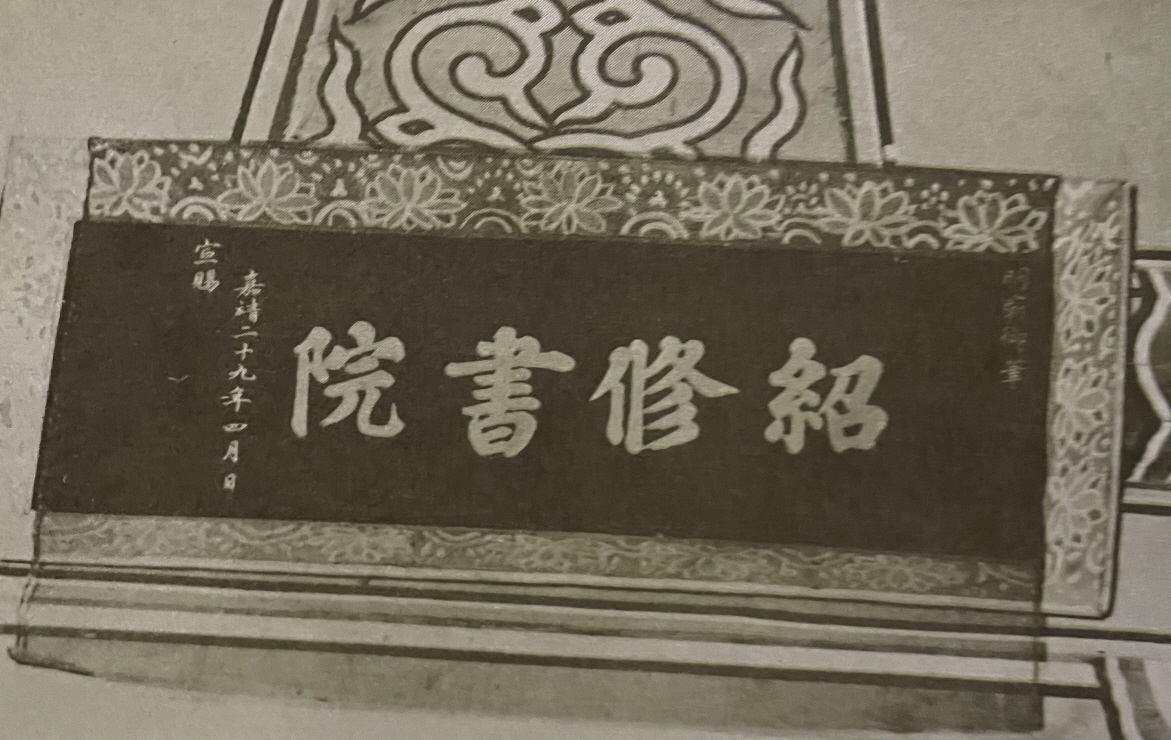 明廟御筆
紹修書院
嘉靖二十九年四月日
宣賜